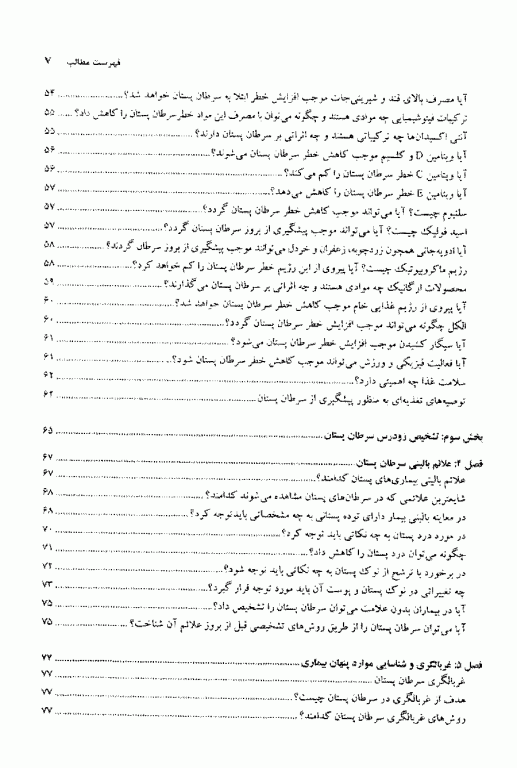 فهرست مطالب ۷
آیا مصرف بالای قند و شیرینی‌جات موجب افزایش خطر ابتلا به سرطان پستان خواهد شد؟ ........ ۵۴
ترکیبات فیتوشیمیایی چه موادی هستند و چگونه می‌توان با مصرف این مواد خطر سرطان پستان را کاهش داد؟ ........ ۵۵
آنتی اکسیدان‌ها چه ترکیباتی هستند و چه اثراتی بر سرطان پستان دارند؟ ........ ۵۵
آیا ویتامین D و کلسیم موجب کاهش خطر سرطان پستان می‌شوند؟ ........ ۵۶
آیا ویتامین C خطر سرطان پستان را کم می‌کند؟ ........ ۵۶
آیا ویتامین E خطر سرطان پستان را کاهش می‌دهد؟ ........ ۵۷
سلنیوم چیست؟ آیا می‌تواند موجب کاهش خطر سرطان پستان گردد؟ ........ ۵۷
اسید فولیک چیست؟ آیا می‌تواند موجب پیشگیری از بروز سرطان پستان گردد؟ ........ ۵۷
آیا ادویه‌جاتی همچون زردچوبه، زعفران و خردل می‌توانند موجب پیشگیری از بروز سرطان گردند؟ ........ ۵۸
رژیم ماکروبیوتیک چیست؟ آیا پیروی از این رژیم خطر سرطان پستان را کم خواهد کرد؟ ........ ۵۸
محصولات ارگانیک چه موادی هستند و چه اثراتی بر سرطان پستان می‌گذارند؟ ........ ۵۹
آیا پیروی از رژیم غذایی خام موجب کاهش خطر سرطان پستان خواهد شد؟ ........ ۶۰
الکل چگونه می‌تواند موجب افزایش خطر سرطان پستان گردد؟ ........ ۶۰
آیا سیگار کشیدن موجب افزایش خطر سرطان پستان می‌شود؟ ........ ۶۱
آیا فعالیت فیزیکی و ورزش می‌تواند موجب کاهش خطر سرطان پستان شود؟ ........ ۶۱
سلامت غذا چه اهمیتی دارد؟ ........ ۶۲
توصیه‌های تغذیه‌ای به منظور پیشگیری از سرطان پستان ........ ۶۲
بخش سوم: تشخیص زودرس سرطان پستان ........ ۶۵
فصل ۴: علائم بالینی سرطان پستان ........ ۶۷
علائم بالینی بیماری‌های پستان کدامند؟ ........ ۶۷
شایعترین علائمی که در سرطان‌های پستان مشاهده می‌شوند کدامند؟ ........ ۶۸
در معاینه بالینی بیمار دارای توده پستانی به چه مشخصاتی باید توجه کرد؟ ........ ۶۸
در مورد درد پستان به چه نکاتی باید توجه کرد؟ ........ ۷۰
چگونه می‌توان درد پستان را کاهش داد؟ ........ ۷۱
در برخورد با ترشح از نوک پستان به چه نکاتی باید توجه شود؟ ........ ۷۲
چه تغییراتی در نوک پستان و پوست آن باید مورد توجه قرار گیرد؟ ........ ۷۳
آیا در بیماران بدون علامت می‌توان سرطان پستان را تشخیص داد؟ ........ ۷۵
آیا می‌توان سرطان پستان را از طریق روش‌های تشخیصی قبل از بروز علائم آن شناخت؟ ........ ۷۵
فصل ۵: غربالگری و شناسایی موارد پنهان بیماری ........ ۷۷
غربالگری سرطان پستان ........ ۷۷
هدف از غربالگری در سرطان پستان چیست؟ ........ ۷۷
روش‌های غربالگری سرطان پستان کدامند؟ ........ ۷۷